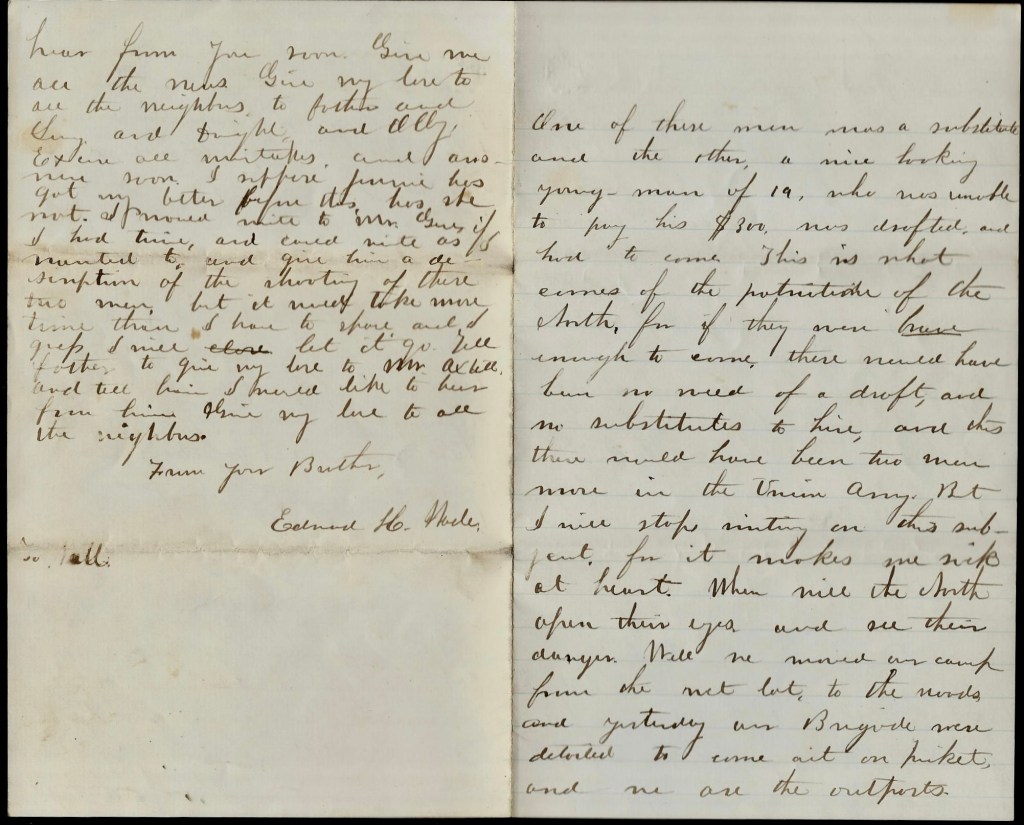 hear from you soon. Give me
all the news Give my love to
all the neighbors, to father and
and Dwight, and
Excuse all mistakes, and ans-
were soon. I suppose Jennie has
got my letter before this, has she
not. I would write to Mr. if
I had time, and could write as I
wanted to, and give him a de-
scription of the shooting of these
two men, but it would take more
time than I have to spare and I
guess I will close let it go. Tell
father to give my love to Mr. Axtell,
and tell him I would like to hear
from him Give my love to all
the neighbors.
From your Brother,
Edward H. Wade.
To Nell.
One of these men was a substitute
and the other, a nice looking
young man of 19, who was unable
to pay his $300, was drafted, and
had to come. This is what
comes of the patriotism of the
North, for if they were brave
enough to come, there would have
been no need of a draft, and
no substitutes to hire, and this
there would have been two men
more in the Union Army. But
I will stop writing on this sub-
ject, for it makes me sick
at heart. When will the North
open their eyes and see their
danger. Well we moved our camp
from the wet lot, to the woods
and yesterday our Brigade were
detailed to come out on picket,
and we are the outposts.